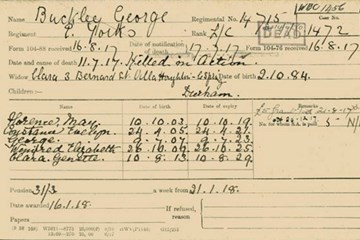 WDC 1456
Name Buckley George Regimental No. 4715 Case No.
Regiment E. Yorks Rank L/C 1472
Form 104-88 received 16.8.17 Date of notification of death 17.7.17 Form 104-76 received 16.8.17
Date and cause of death 11.7.17 Killed in Action
Widow Clara 3 Bernard St. 2.10.84.
Children:— Durham
Name Date of birth Date of expiry Remarks
Florence May. 10.10.03. 10.10.19.
Constance Evelyn. 24.4.05 24.4.21.
George. 9.7.07 9.7.23
Winifred Elizabeth 26.10.09 26.10.25
Clara Genetta. 10.8.13 10.8.29.
Pension 31/3 a week from 21.1.18.
Date awarded 16.1.18. If refused,
Papers reason